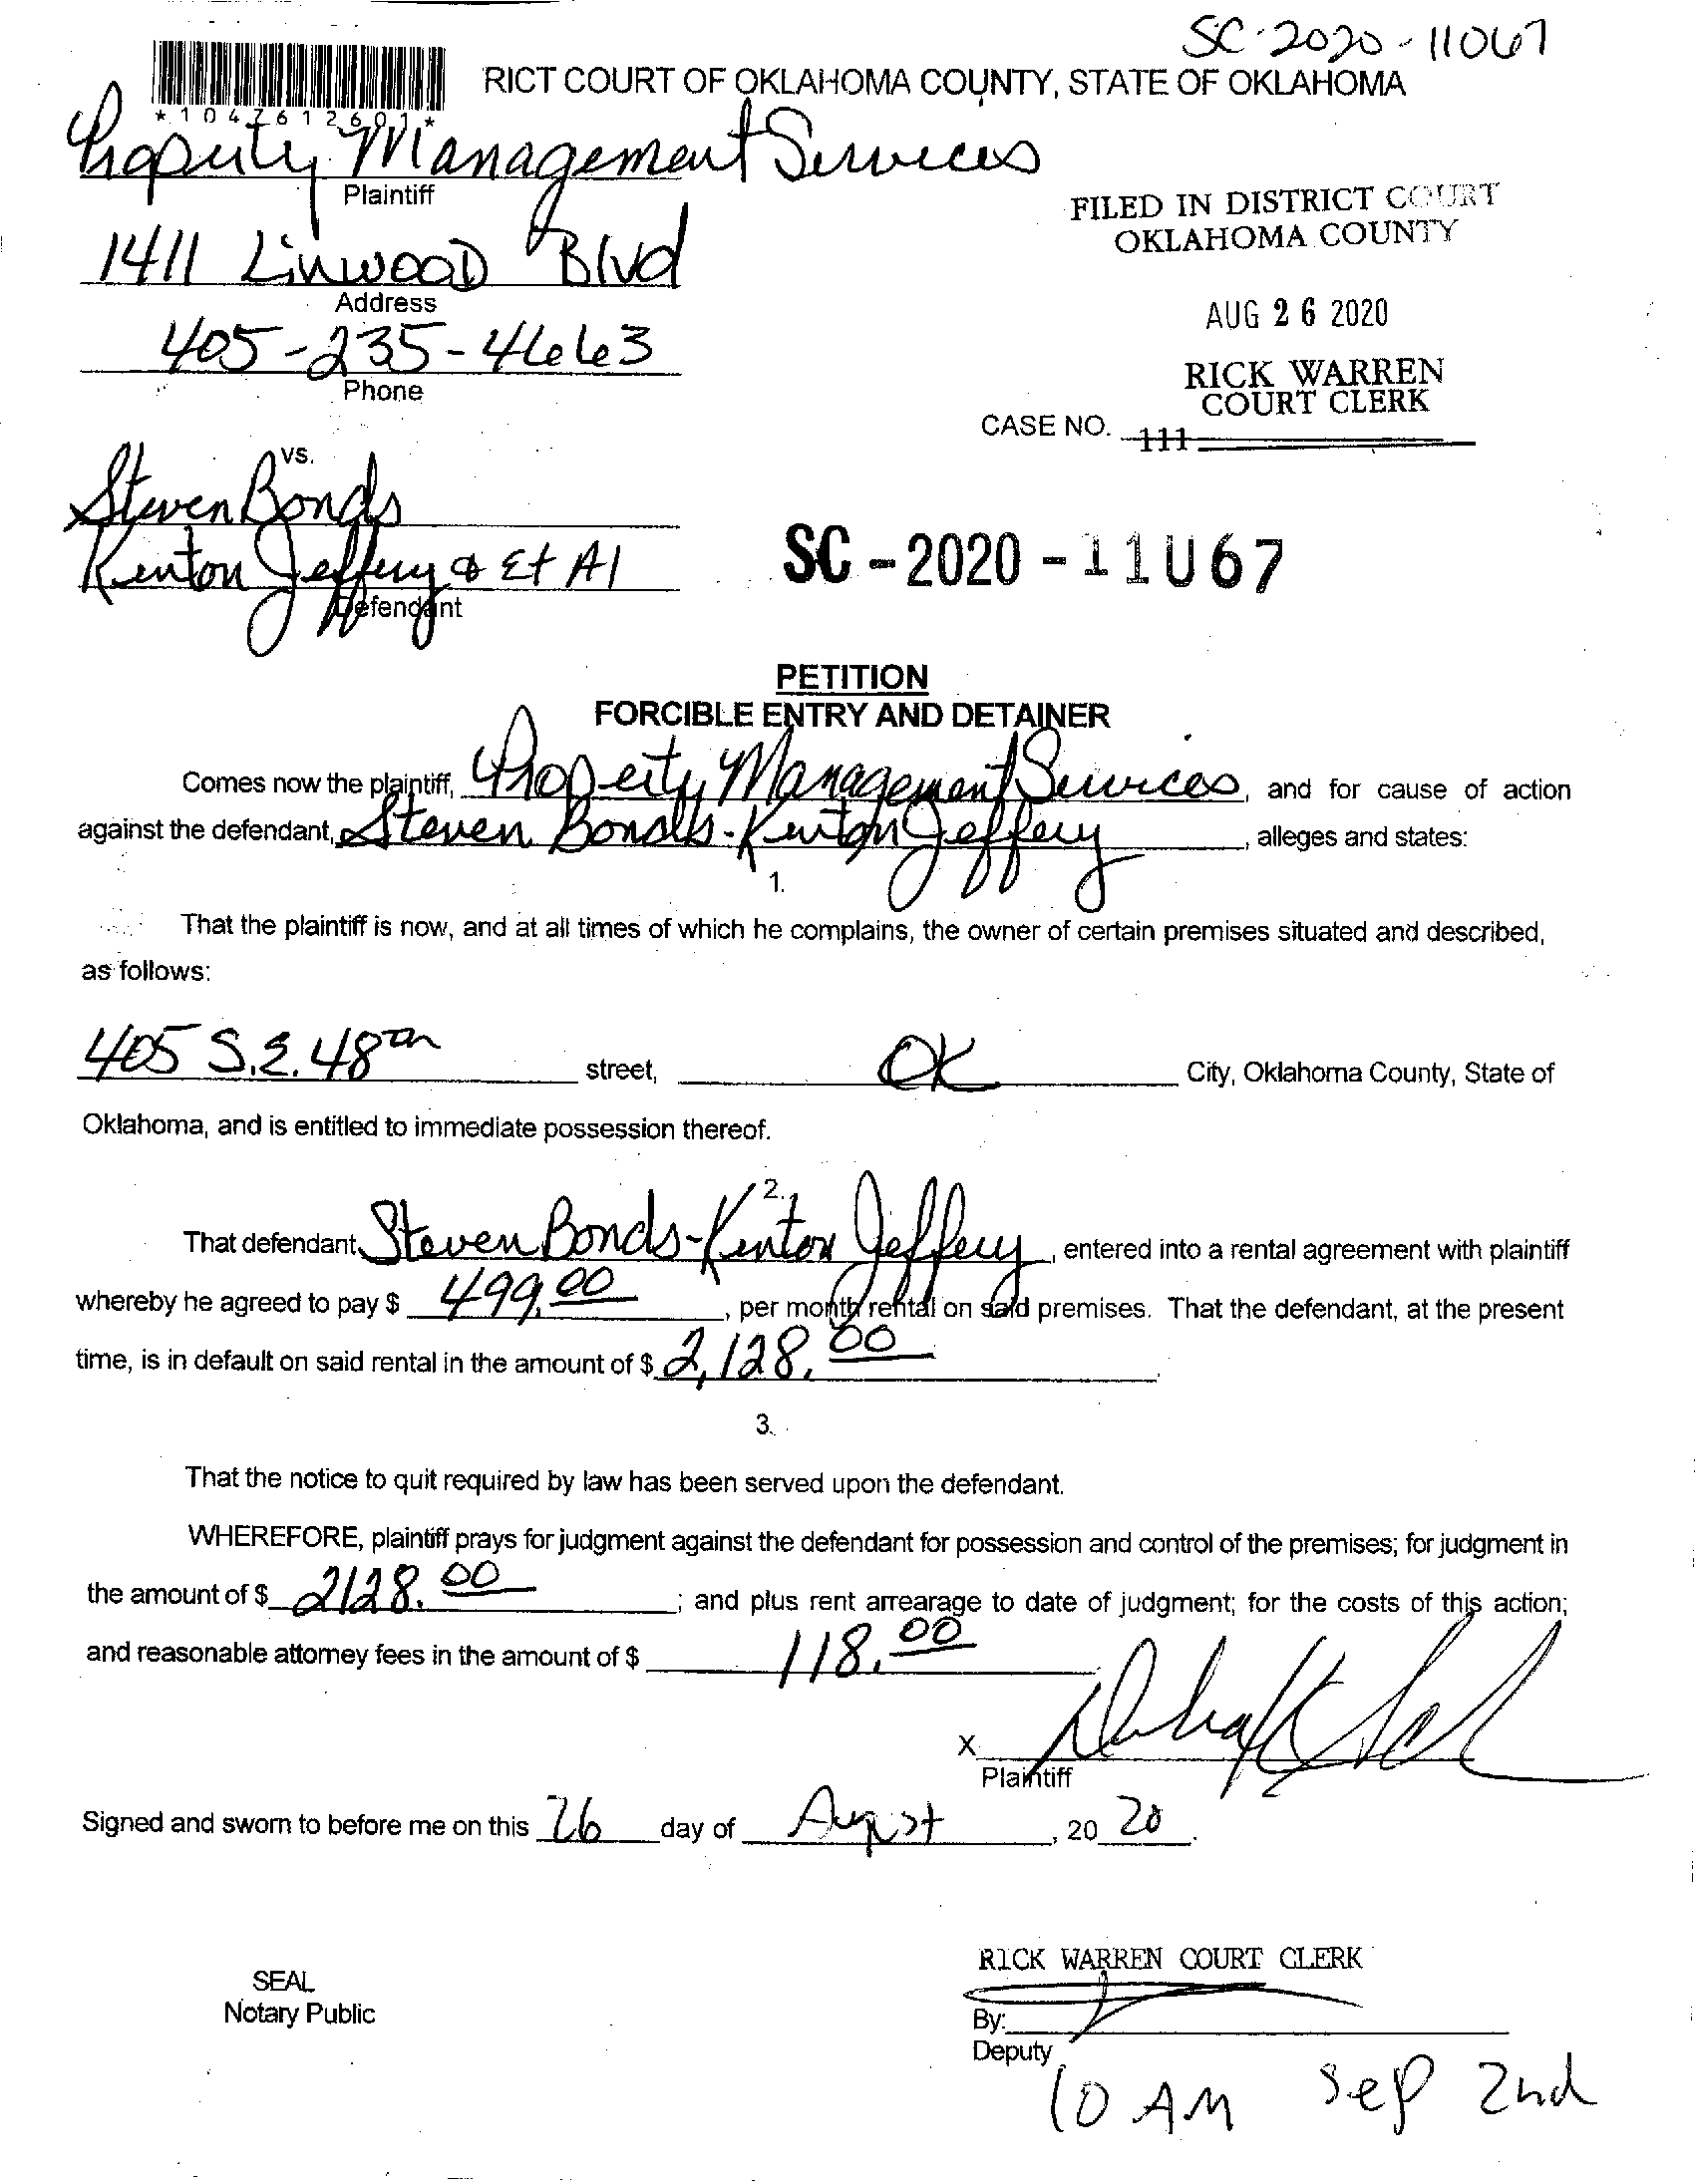 SC-2020-11067
RICT COURT OF OKLAHOMA COUNTY, STATE OF OKLAHOMA
*1047612601*
Property Management Services
Plaintiff
FILED IN DISTRICT COURT
OKLAHOMA COUNTY
1411 Linwood Blvd
Address
AUG 26 2020
405-235-4663
Phone
RICK WARREN
COURT CLERK
CASE NO. 111
vs.
Steven Bonds
Kenton Jeffery & Et Al
Defendant
SC-2020-11067
PETITION
FORCIBLE ENTRY AND DETAINER
Comes now the plaintiff, Property Management Services, and for cause of action
against the defendant, Steven Bonds-Kenton Jeffery, alleges and states:
1.
That the plaintiff is now, and at all times of which he complains, the owner of certain premises situated and described,
as follows:
405 S.E. 48th street, OK City, Oklahoma County, State of
Oklahoma, and is entitled to immediate possession thereof.
2.
That defendant, Steven Bonds-Kenton Jeffery, entered into a rental agreement with plaintiff
whereby he agreed to pay $ 499.00, per month rental on said premises. That the defendant, at the present
time, is in default on said rental in the amount of $ 2,128.00.
3.
That the notice to quit required by law has been served upon the defendant.
WHEREFORE, plaintiff prays for judgment against the defendant for possession and control of the premises; for judgment in
the amount of $ 2128.00; and plus rent arrearage to date of judgment; for the costs of this action;
and reasonable attorney fees in the amount of $ 118.00
X
Plaintiff
Signed and sworn to before me on this 26 day of August, 2020.
RICK WARREN COURT CLERK
SEAL
Notary Public
By:
Deputy
10 AM Sep 2nd